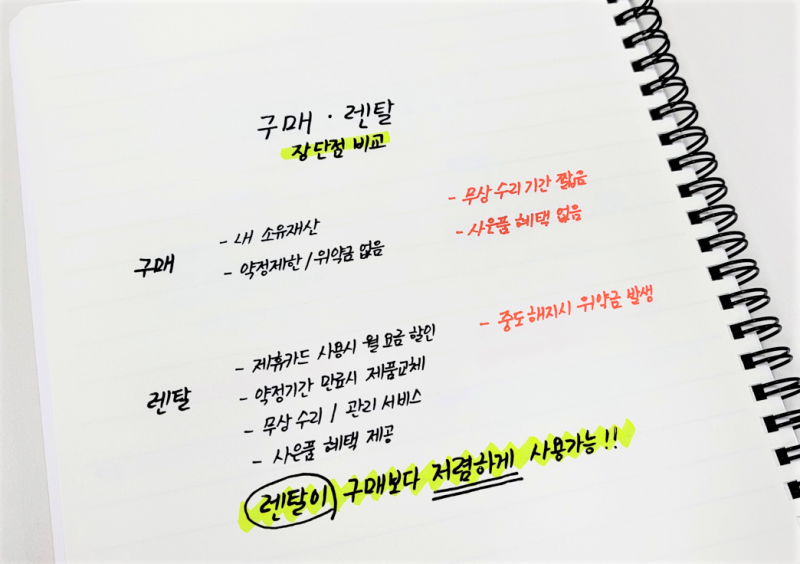 구매 · 렌탈
장단점 비교
구매
- 내 소유재산
- 약정제한/위약금 없음
- 무상수리기간 짧음
- 사은품 혜택 없음
렌탈
- 제휴카드 사용시 월 요금 할인
- 약정기간 만료시 제품교체
- 무상 수리 / 관리 서비스
- 사은품 혜택 제공
- 중도해지시 위약금 발생
렌탈이 구매보다 저렴하게 사용가능!!